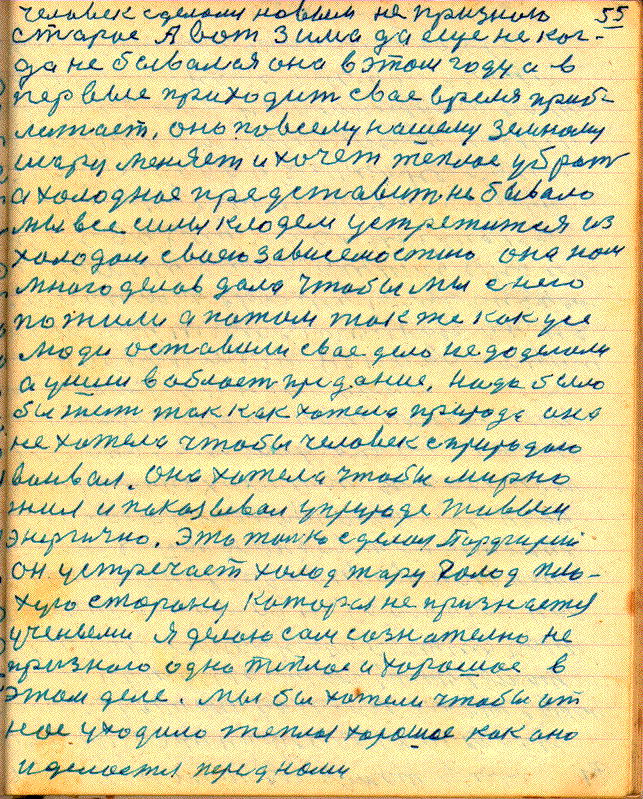 55
человек сделали новым не признаю
старое А вот Зима да еще не ког-
да не бывалая она в этом году а в
первые приходит свае время приб-
лжает, она по всему нашему земному
шару меняет и хочет теплое убрат
а холодное представит. не бывало
мы все силы кладем устретится из
холодам своею зависемостию она нам
много делов дала чтобы мы с него
пожили а потом так же как усе
люди оставили свае дело не доделали
а ушли в област придание. Нада было
бы жит так как хотела природа она
не хотела чтобы человек с природаю
воивал. Она хотела чтобы мирно
жил и показывал у природе живым
энергично. Это толко сделал Парфирий
он устречает холод жару Голод пло-
хую сторону Каторая не признается
ученыеми Я делаю сам сознателно не
признаю одно типлое и хорошое в
этом деле. Мы бы хотели чтобы от
нас уходило теплое хорошое как оно
и делается перед нами